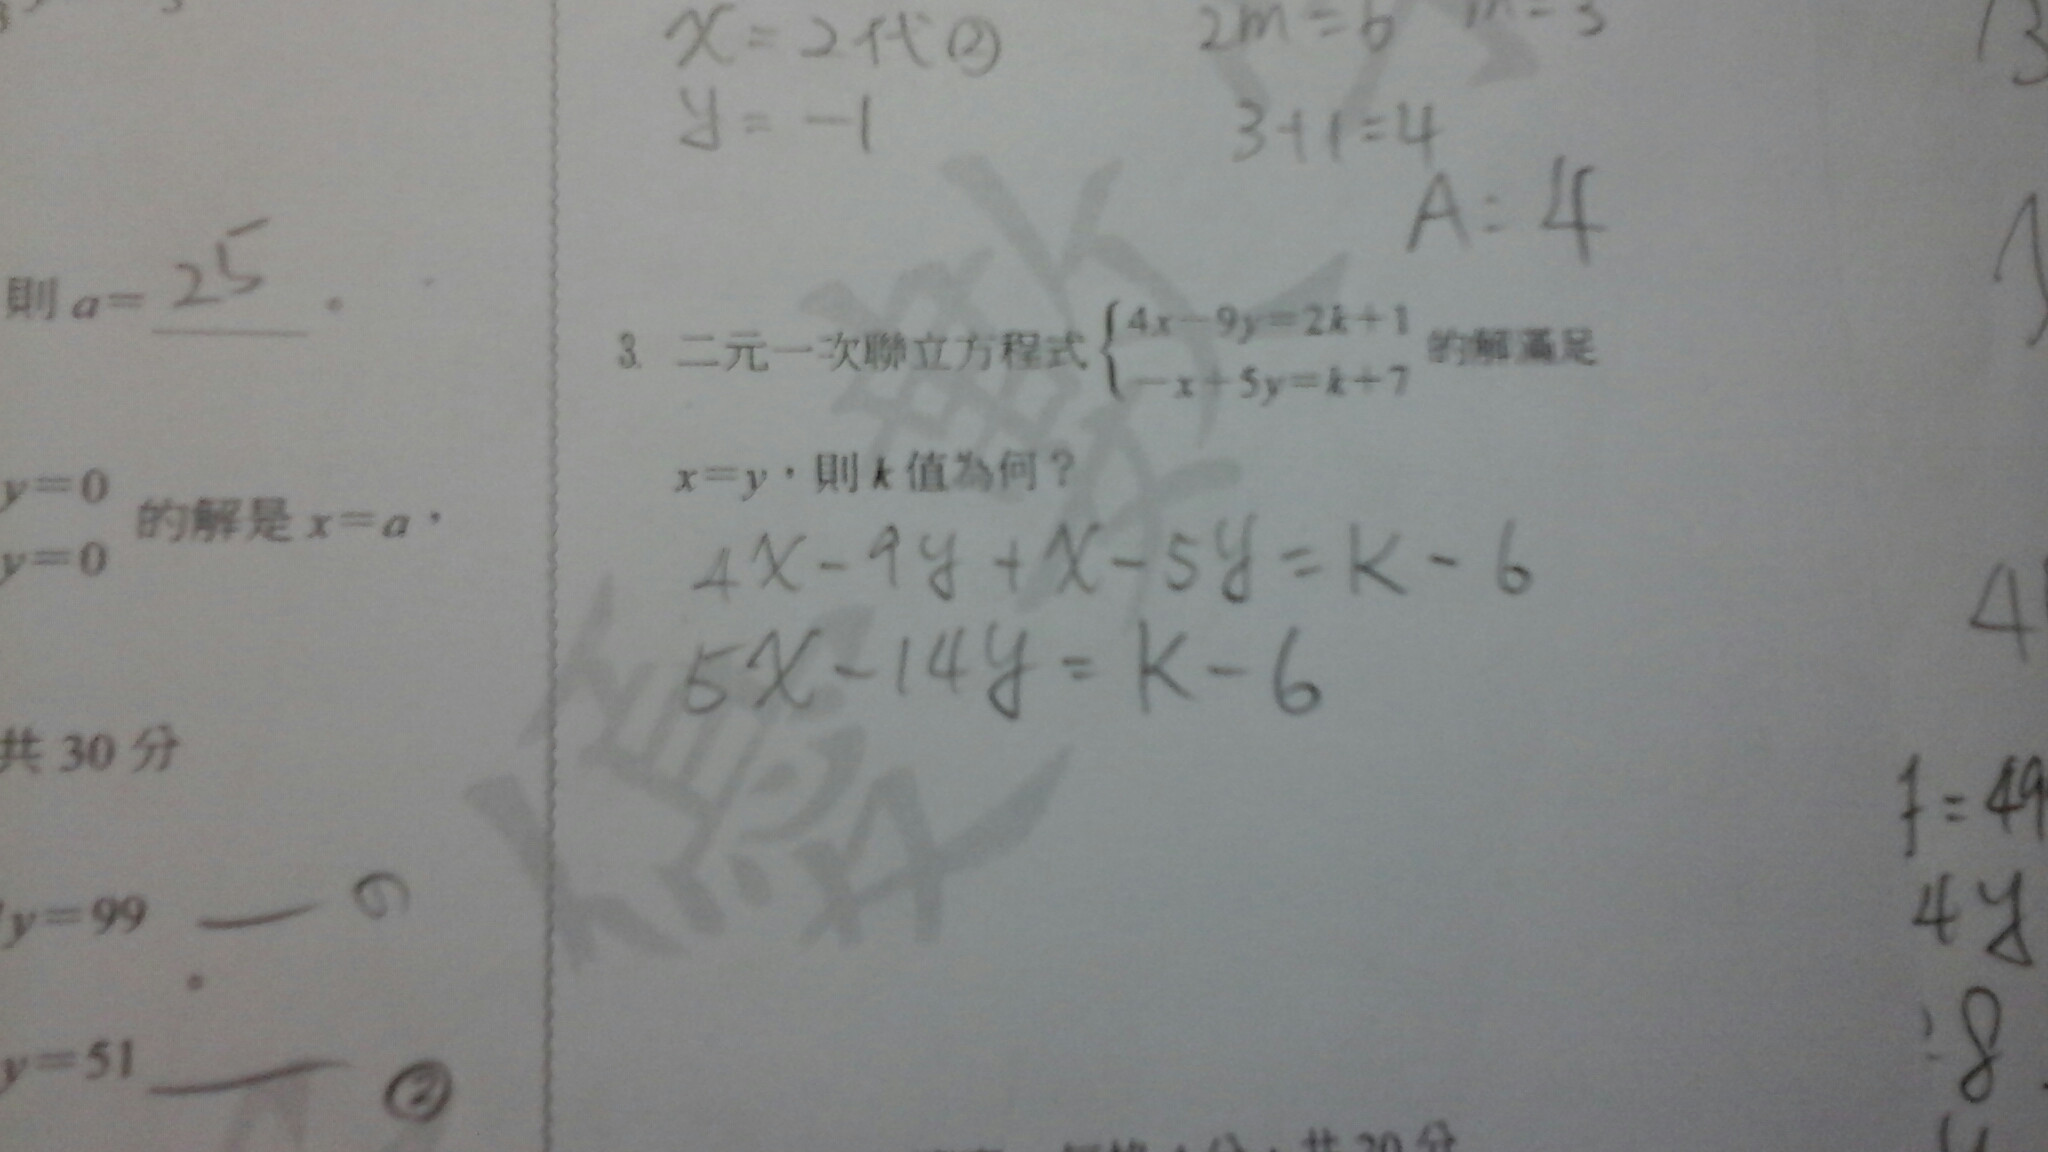 則 a= 25 。
y=0
的解是 x=a，
y=0
共 30 分
y=99 — 
y=51 — ②
x=2代②
y=-1
2m=6 m=3
3+1=4
A=4
3. 二元一次聯立方程式 { 4x-9y=2k+1
-x+5y=k+7 的解滿足
x=y，則 k 值為何？
4x-9y+x-5y=k-6
5x-14y=k-6
共 20 分
=49
4y
8